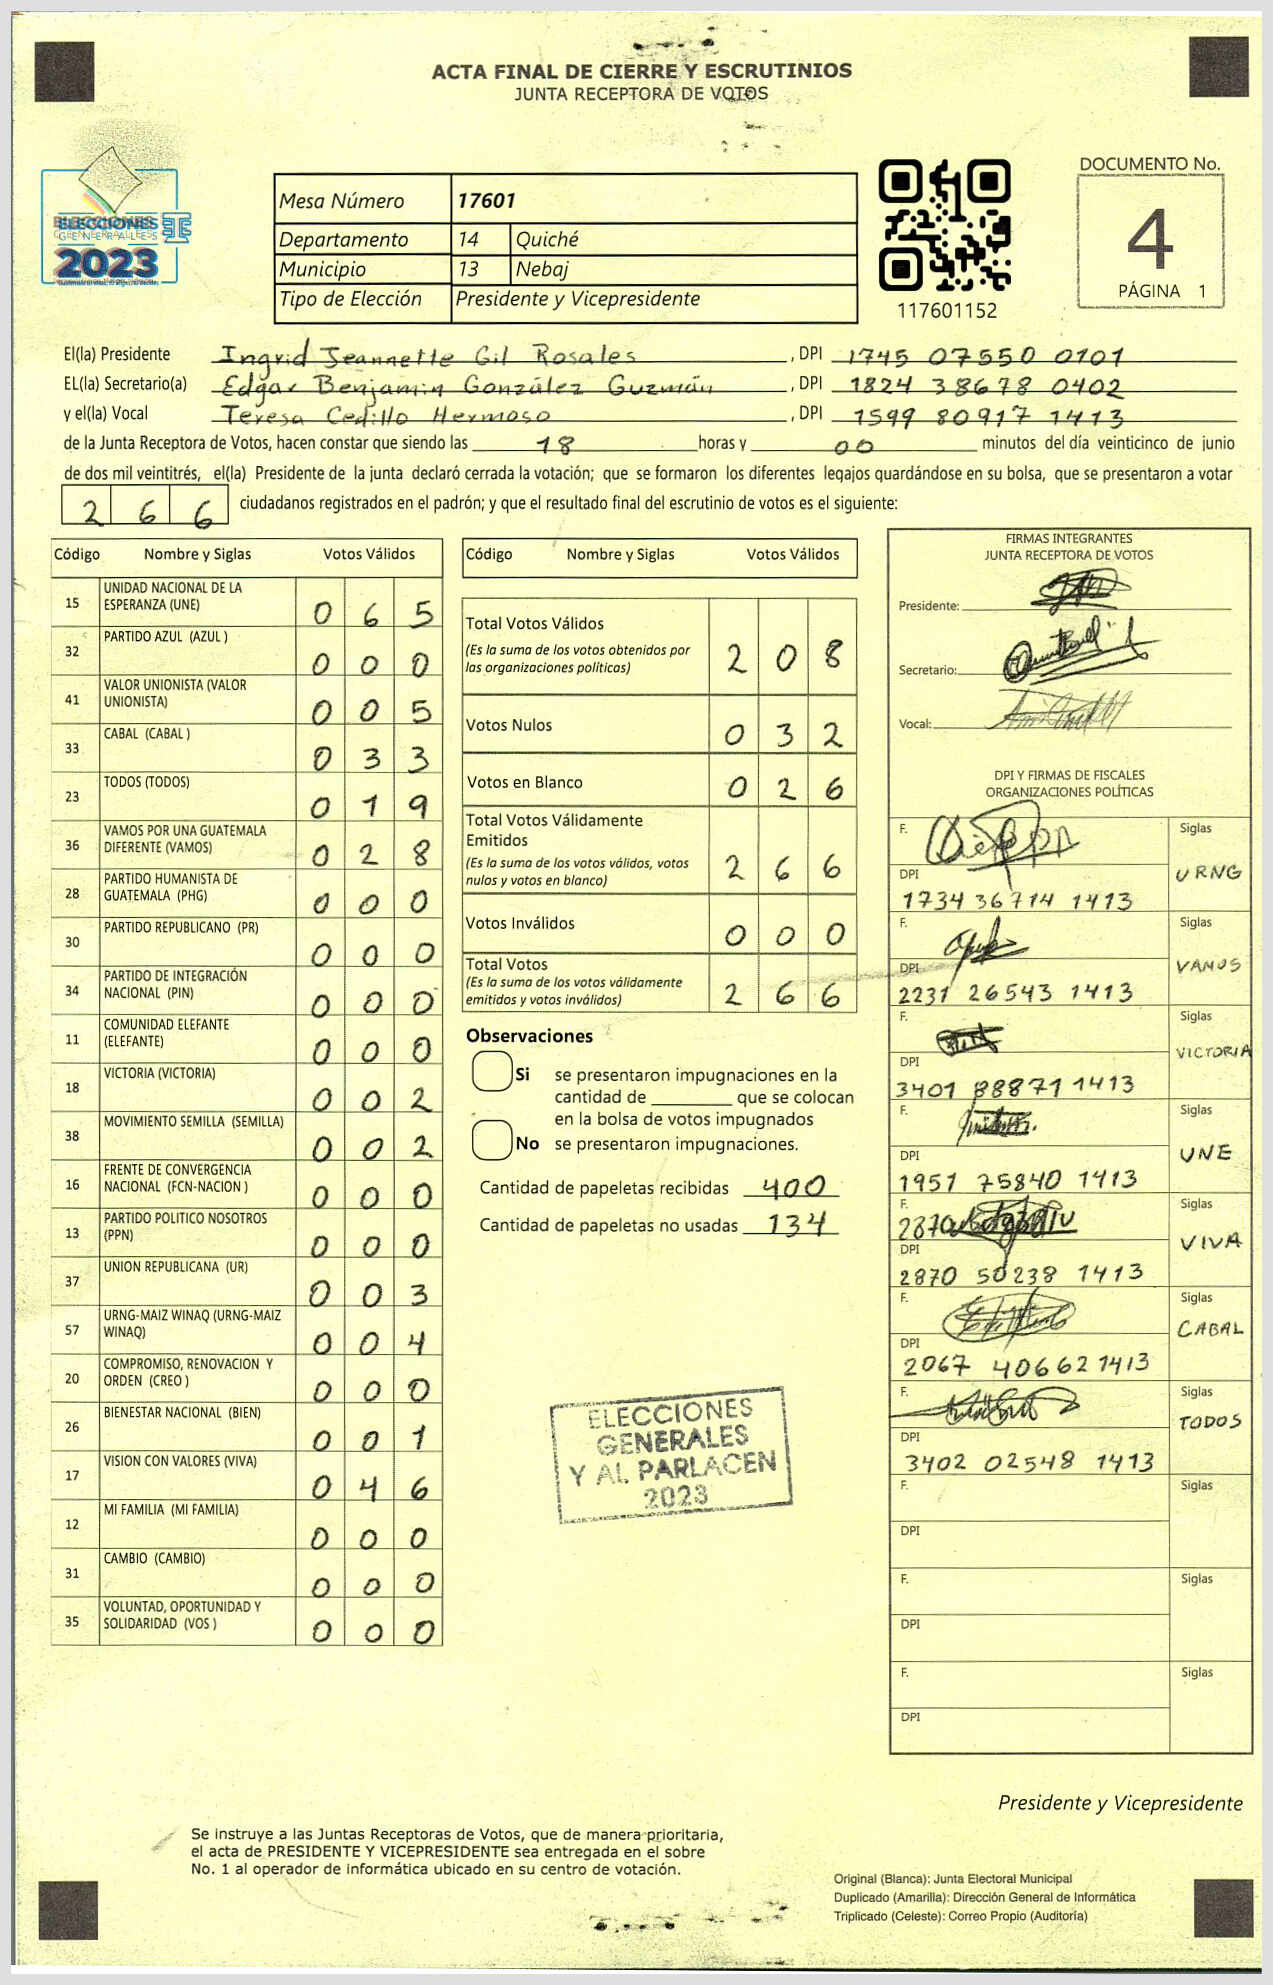 ACTA FINAL DE CIERRE Y ESCRUTINIOS
JUNTA RECEPTORA DE VOTOS
ELECCIONES
GENERALES
2023
Mesa Número 17601
Departamento 14 Quiché
Municipio 13 Nebaj
Tipo de Elección Presidente y Vicepresidente
117601152
DOCUMENTO No.
4
PÁGINA 1
El(la) Presidente Ingrid Jeannette Gil Rosales, DPI 1745 07550 0101
EL(la) Secretario(a) Edgar Benjamin González Guzmán, DPI 1824 38678 0402
y el(la) Vocal Teresa Cedillo Hermoso, DPI 1599 80917 1413
de la Junta Receptora de Votos, hacen constar que siendo las 18 horas y 00 minutos del día veinticinco de junio
de dos mil veintitrés, el(la) Presidente de la junta declaró cerrada la votación; que se formaron los diferentes legajos guardándose en su bolsa, que se presentaron a votar
266 ciudadanos registrados en el padrón; y que el resultado final del escrutinio de votos es el siguiente:
Código Nombre y Siglas Votos Válidos
15 UNIDAD NACIONAL DE LA ESPERANZA (UNE) 065
32 PARTIDO AZUL (AZUL ) 000
41 VALOR UNIONISTA (VALOR UNIONISTA) 005
33 CABAL (CABAL ) 033
23 TODOS (TODOS) 019
36 VAMOS POR UNA GUATEMALA DIFERENTE (VAMOS) 028
28 PARTIDO HUMANISTA DE GUATEMALA (PHG) 000
30 PARTIDO REPUBLICANO (PR) 000
34 PARTIDO DE INTEGRACIÓN NACIONAL (PIN) 000
11 COMUNIDAD ELEFANTE (ELEFANTE) 000
18 VICTORIA (VICTORIA) 002
38 MOVIMIENTO SEMILLA (SEMILLA) 002
16 FRENTE DE CONVERGENCIA NACIONAL (FCN-NACION ) 000
13 PARTIDO POLITICO NOSOTROS (PPN) 000
37 UNION REPUBLICANA (UR) 003
57 URNG-MAIZ WINAQ (URNG-MAIZ WINAQ) 004
20 COMPROMISO, RENOVACION Y ORDEN (CREO ) 000
26 BIENESTAR NACIONAL (BIEN) 001
17 VISION CON VALORES (VIVA) 046
12 MI FAMILIA (MI FAMILIA) 000
31 CAMBIO (CAMBIO) 000
35 VOLUNTAD, OPORTUNIDAD Y SOLIDARIDAD (VOS ) 000
Código Nombre y Siglas Votos Válidos
Total Votos Válidos 208
(Es la suma de los votos obtenidos por
las organizaciones políticas)
Votos Nulos 032
Votos en Blanco 026
Total Votos Válidamente
Emitidos 266
(Es la suma de los votos válidos, votos
nulos y votos en blanco)
Votos Inválidos 000
Total Votos 266
(Es la suma de los votos válidamente
emitidos y votos inválidos)
Observaciones
Si se presentaron impugnaciones en la
cantidad de ________ que se colocan
en la bolsa de votos impugnados
No se presentaron impugnaciones.
Cantidad de papeletas recibidas 400
Cantidad de papeletas no usadas 134
ELECCIONES
GENERALES
Y AL PARLACEN
2023
FIRMAS INTEGRANTES
JUNTA RECEPTORA DE VOTOS
Presidente:
Secretario:
Vocal:
DPI Y FIRMAS DE FISCALES
ORGANIZACIONES POLÍTICAS
F. Siglas URNG
DPI 1734 36714 1413
F. Siglas VAMOS
DPI 2231 26543 1413
F. Siglas VICTORIA
DPI 3401 88871 1413
F. Siglas UNE
DPI 1951 75840 1413
F. Siglas VIVA
DPI 2870 50238 1413
F. Siglas CABAL
DPI 2067 40662 1413
F. Siglas TODOS
DPI 3402 02548 1413
F. Siglas
DPI
F. Siglas
DPI
F. Siglas
DPI
Presidente y Vicepresidente
Se instruye a las Juntas Receptoras de Votos, que de manera prioritaria,
el acta de PRESIDENTE Y VICEPRESIDENTE sea entregada en el sobre
No. 1 al operador de informática ubicado en su centro de votación.
Original (Blanca): Junta Electoral Municipal
Duplicado (Amarilla): Dirección General de Informática
Triplicado (Celeste): Correo Propio (Auditoría)